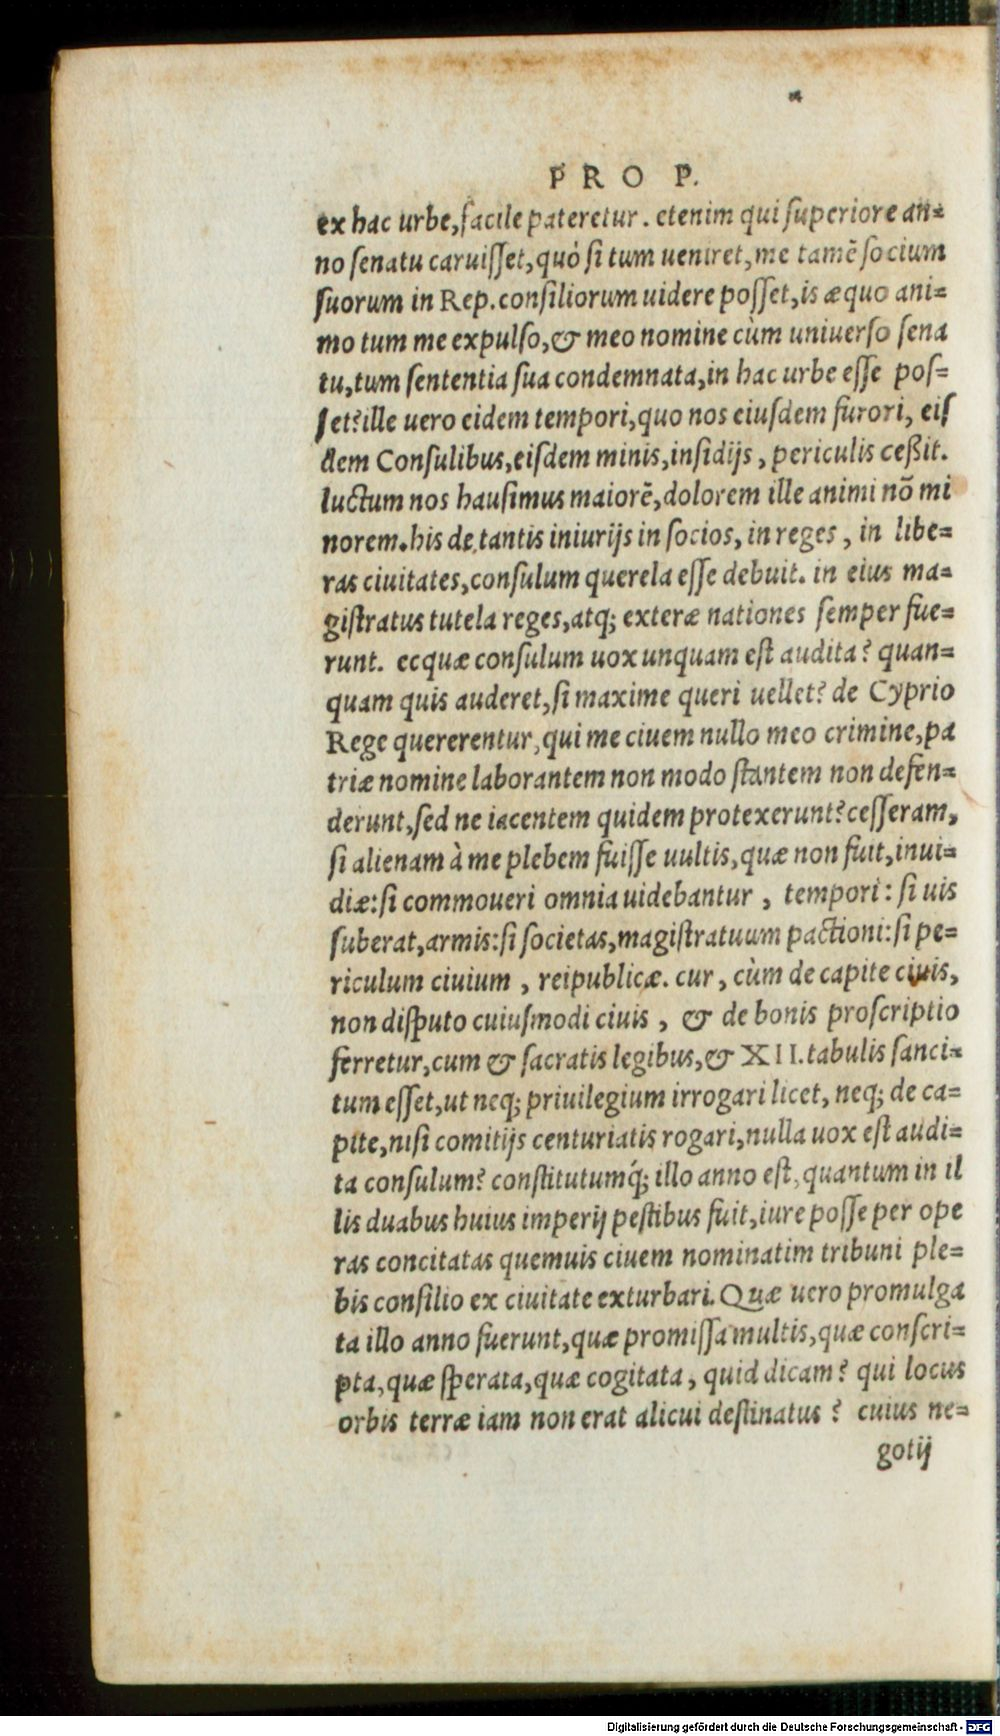 PRO P.
ex hac urbe, facile pateretur. etenim qui superiore an=
no senatu caruisset, quò si tum ueniret, me tamẽ socium
suorum in Rep. consiliorum uidere posset, is æquo ani=
mo tum me expulso, & meo nomine cùm uniuerso sena
tu, tum sententia sua condemnata, in hac urbe esse pos=
set? ille uero eidem tempori, quo nos eiusdem furori, eis
dem Consulibus, eisdem minis, insidijs, periculis ceßit.
luctum nos hausimus maiorẽ, dolorem ille animi nõ mi
norem. his de tantis iniurijs in socios, in reges, in libe=
ras ciuitates, consulum querela esse debuit. in eius ma=
gistratus tutela reges, atq; exteræ nationes semper fue=
runt. ecquæ consulum uox unquam est audita? quan=
quam quis auderet, si maxime queri uellet? de Cyprio
Rege quererentur, qui me ciuem nullo meo crimine, pa
triæ nomine laborantem non modo stantem non defen=
derunt, sed ne iacentem quidem protexerunt? cesseram,
si alienam à me plebem fuisse uultis, quæ non fuit, inui=
diæ: si commoueri omnia uidebantur, tempori: si uis
suberat, armis: si societas, magistratuum pactioni: si pe=
riculum ciuium, reipublicæ. cur, cùm de capite ciuis,
non disputo cuiusmodi ciuis, & de bonis proscriptio
ferretur, cum & sacratis legibus, & XII. tabulis sanci=
tum esset, ut neq; priuilegium irrogari licet, neq; de ca=
pite, nisi comitijs centuriatis rogari, nulla uox est audi=
ta consulum? constitutumq́; illo anno est, quantum in il
lis duabus huius imperij pestibus fuit, iure posse per ope
ras concitatas quemuis ciuem nominatim tribuni ple=
bis consilio ex ciuitate exturbari. Quæ uero promulga
ta illo anno fuerunt, quæ promissa multis, quæ conscri=
pta, quæ sperata, quæ cogitata, quid dicam? qui locus
orbis terræ iam non erat alicui destinatus? cuius ne=
gotij
Digitalisierung gefördert durch die Deutsche Forschungsgemeinschaft - DFG